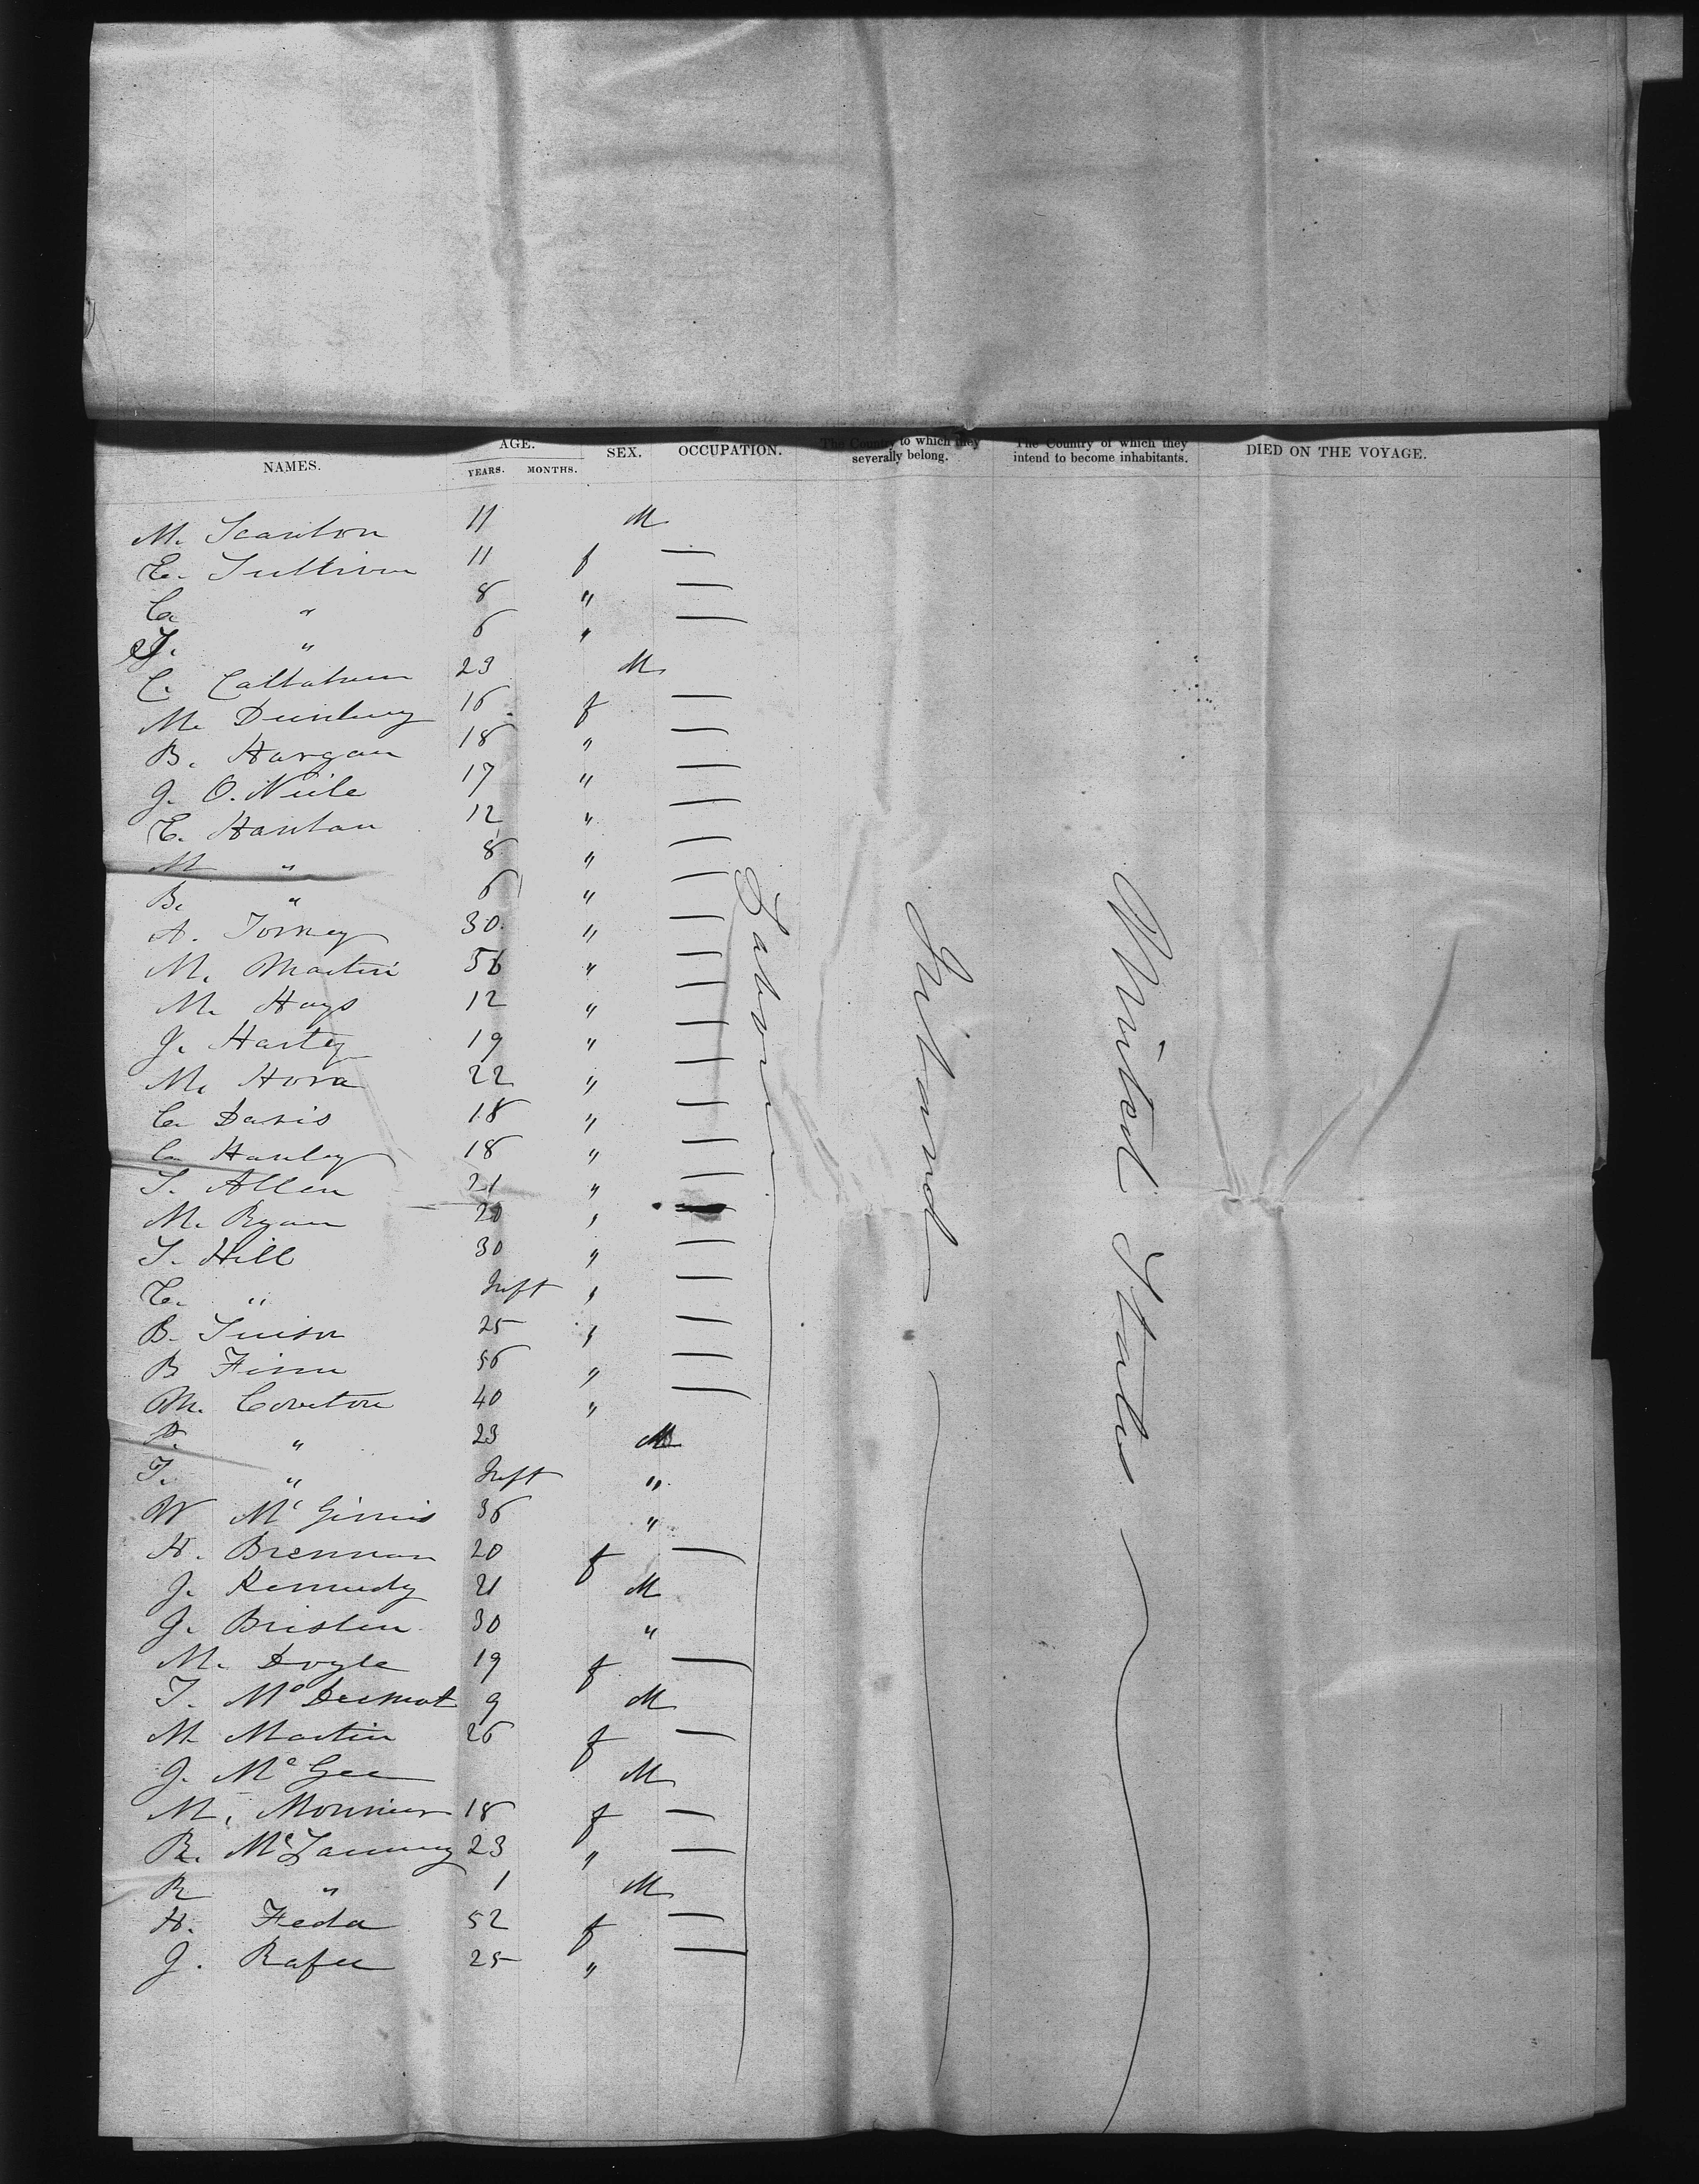 NAMES. AGE. YEARS. MONTHS. SEX. OCCUPATION. The Country to which they severally belong. The Country of which they intend to become inhabitants. DIED ON THE VOYAGE.
M. Scanlon 11 M
E. Sullivan 11 f —
Ca " 8 " —
J. " 6 " —
C. Callahan 23 M
M. 16 f —
B. Horgan 18 " —
J. O. Niele 17 " —
E. Hanlan 12 " —
M " 8 " —
B. " 6 " —
A. Torney 30 " —
M. Martin 56 " —
M. Hays 12 " —
J. Hartey 19 " —
M. Hora 22 " —
Ca Davis 18 " —
Ca Hanley 18 " —
S. Allen 21 " —
M. Ryan 20 " —
S. Hill 30 " —
E. " Inft " —
B. 25 " —
B Finn 56 " —
M. 40 " —
P. " 23 M
T. " Inft "
W Mc Ginnis 36 "
H. Brennan 20 f —
J. Kennedy 21 M
J. Brislen 30 "
M. Doyle 19 f —
T. Mc Dermot 9 M
M Martin 26 f —
J. Mc Gee M
M. 18 f —
R. 23 " —
R " 1 M
H. Feda 52 f —
J. Rafee 25 " —
Labore
Ireland
United States